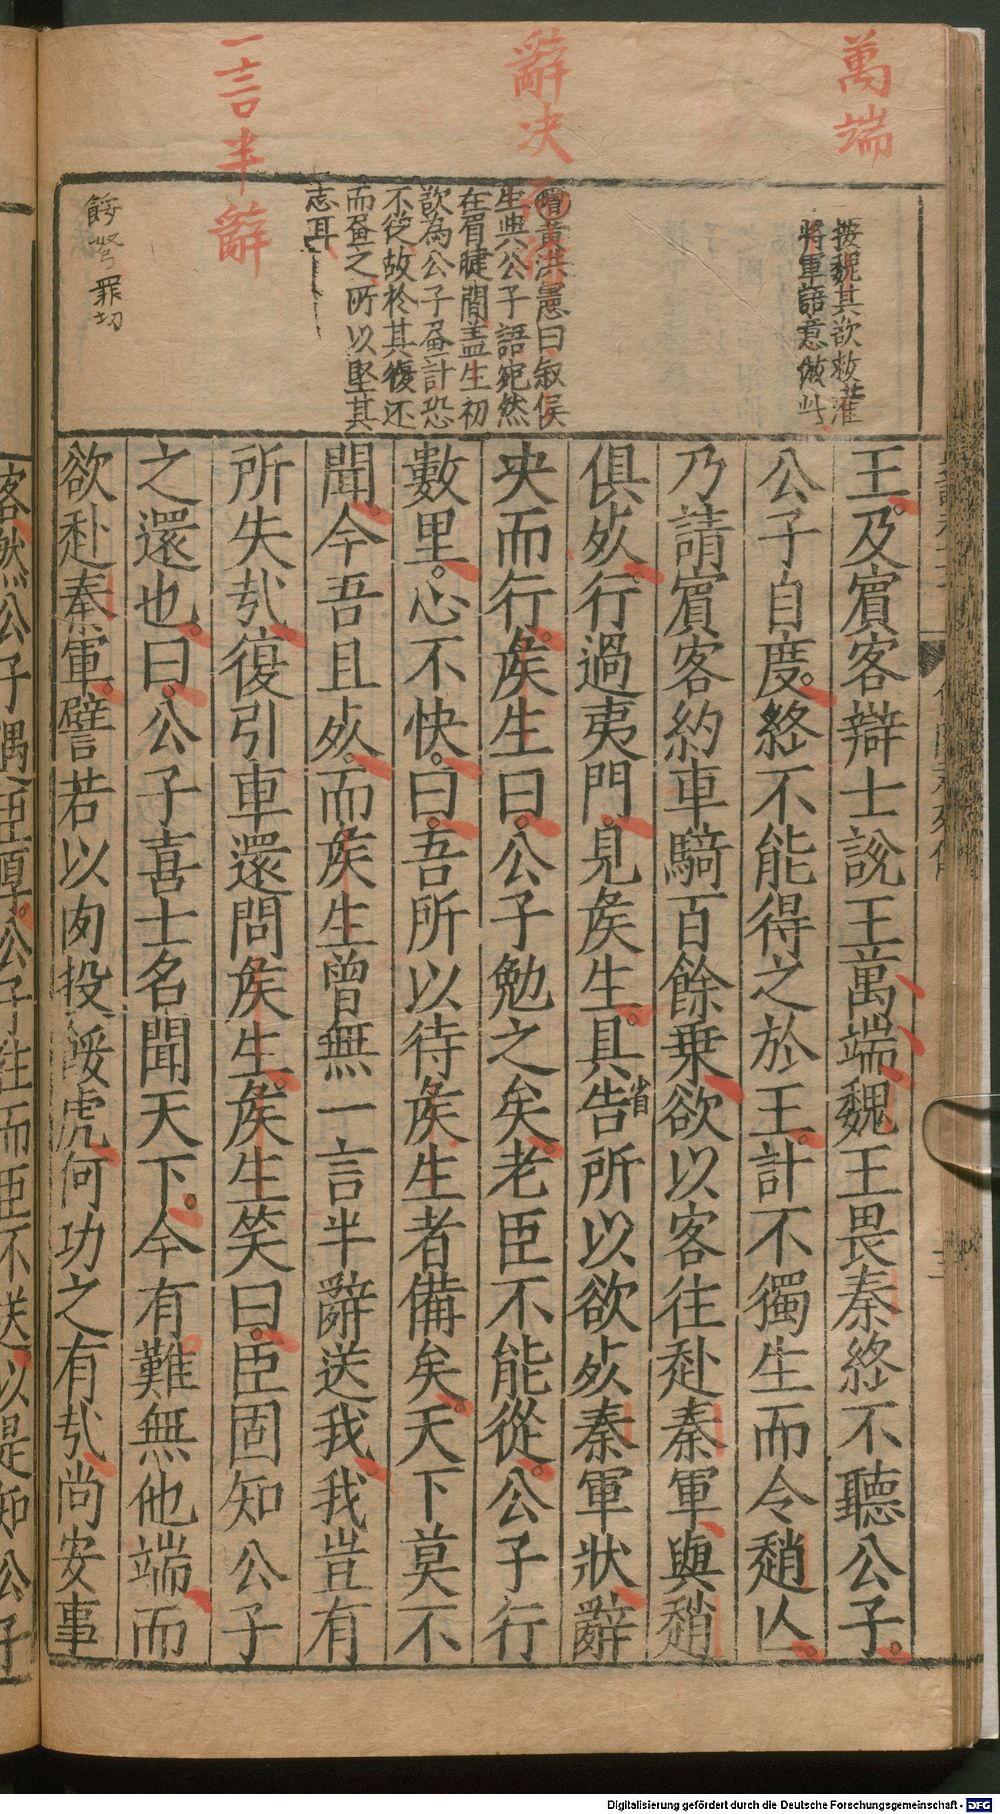 萬端
辭決
一言半辭
按魏其欲救灌
將軍語意倣此
增黃洪憲曰叙侯
生與公子語宛然
在眉睫間盖生初
欲為公子畫計恐
不從故於其復还
而畫之所以堅其
志耳
餒弩罪切
王及賓客辯士說王萬端魏王畏秦終不聽公子
公子自度終不能得之於王計不獨生而令趙亾
乃請賓客約車騎百餘乗欲以客往赴秦軍與趙
俱死行過夷門見矦生具告所以欲死秦軍狀辭
省
央而行矦生曰公子勉之矣老臣不能從公子行
數里心不快曰吾所以待矦生者備矣天下莫不
聞今吾且死而矦生曾無一言半辭送我我豈有
所失㢤復引車還問矦生矦生笑曰臣固知公子
之還也曰公子喜士名聞天下今有難無他端而
欲赴秦軍譬若以肉投餒虎何功之有㢤尚安事
客然公子遇臣厚公子往而臣不送以是知公子
Digitalisierung gefördert durch die Deutsche Forschungsgemeinschaft - DFG